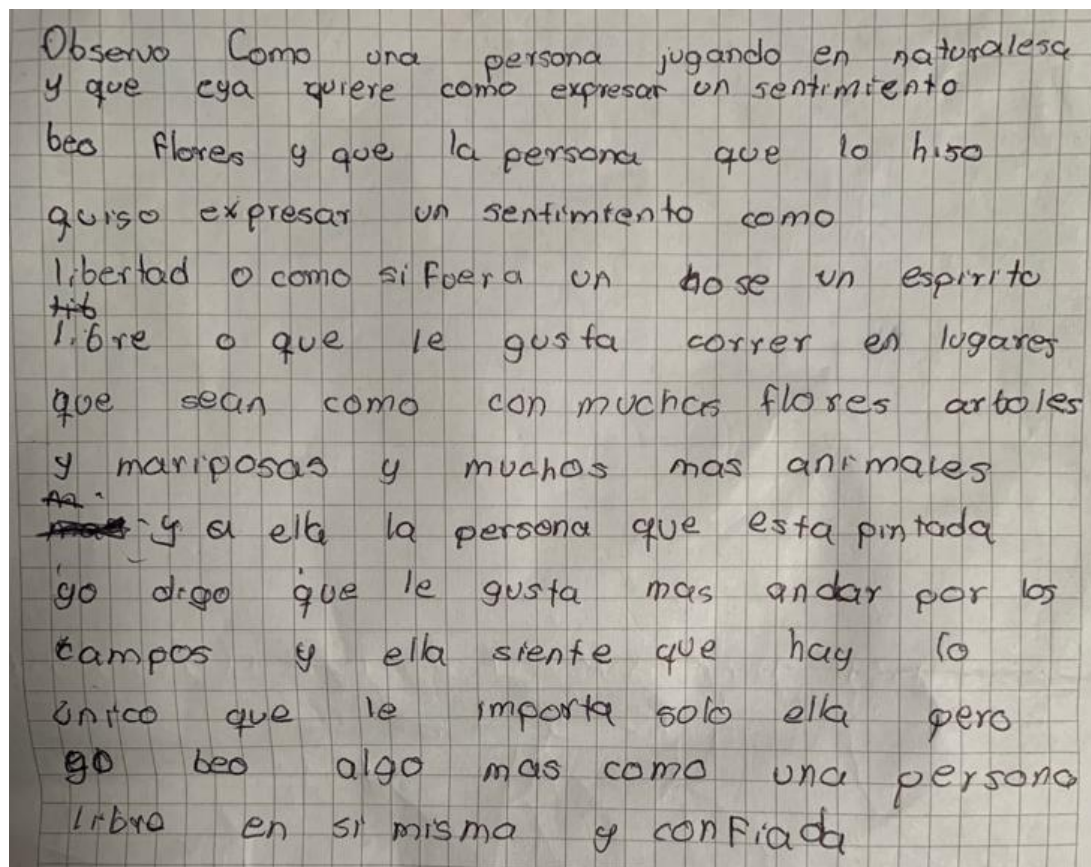 Observo Como una persona jugando en naturalesa
y que eya quiere como expresar un sentimiento
beo flores y que la persona que lo hiso
quiso expresar un sentimiento como
libertad o como si fuera un nose un espiritu
libre o que le gusta correr en lugares
que sean como con muchas flores arboles
y mariposas y muchos mas animales
y a ella la persona que esta pintada
yo digo que le gusta mas andar por los
campos y ella siente que hay lo
único que le importa solo ella pero
yo beo algo mas como una persona
libre en si misma y confiada